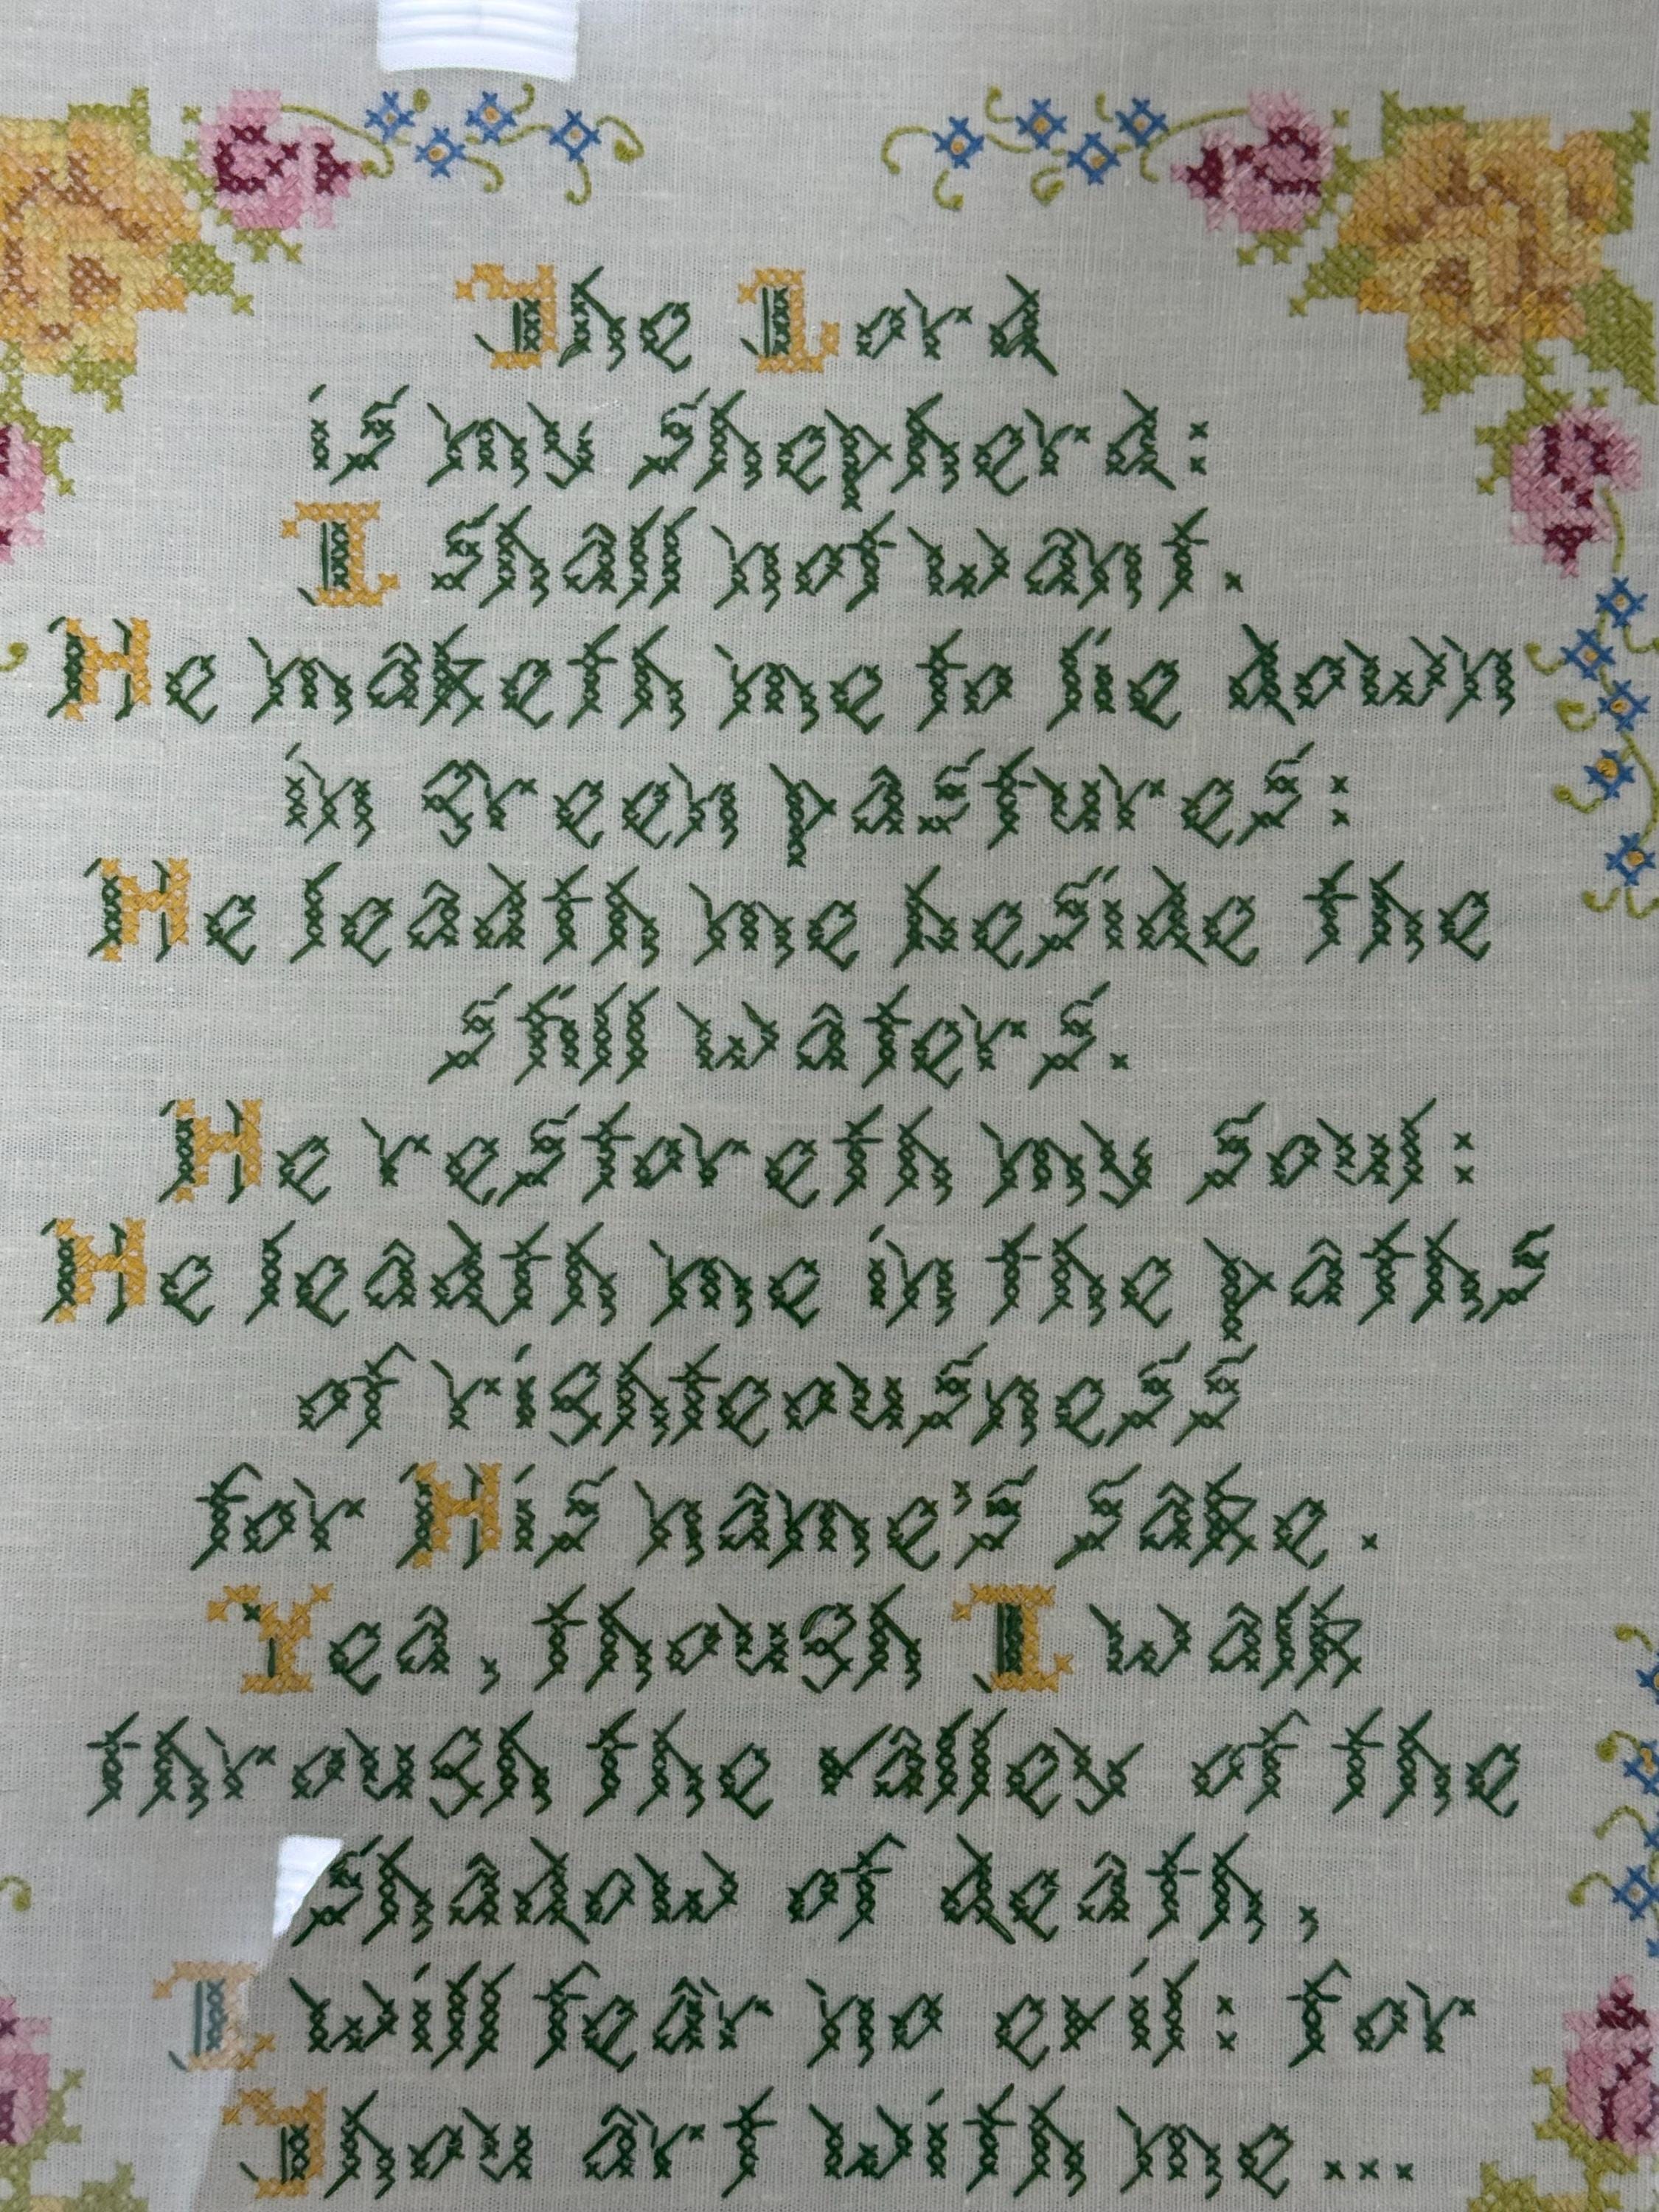 The Lord
is my shepherd:
I shall not want.
He maketh me to lie down
in green pastures:
He leadth me beside the
still waters.
He restoreth my soul:
He leadth me in the paths
of righteousness
for His name's sake.
Yea, though I walk
through the valley of the
shadow of death,
I will fear no evil: for
Thou art with me...